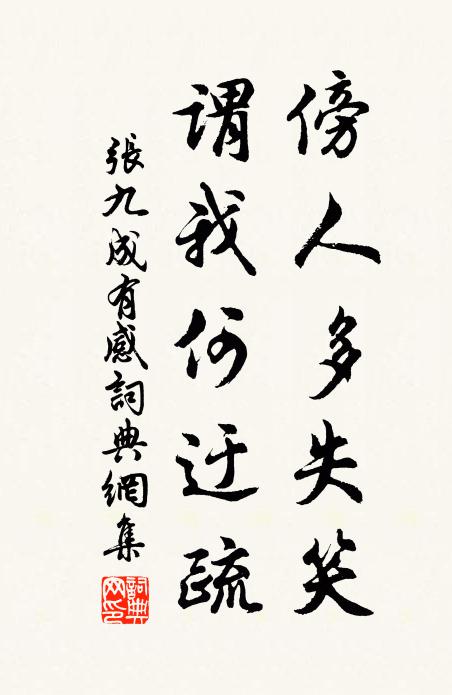 傍人多失笑
謂我何迂疏
張九成有感詞典網集
詞典网印